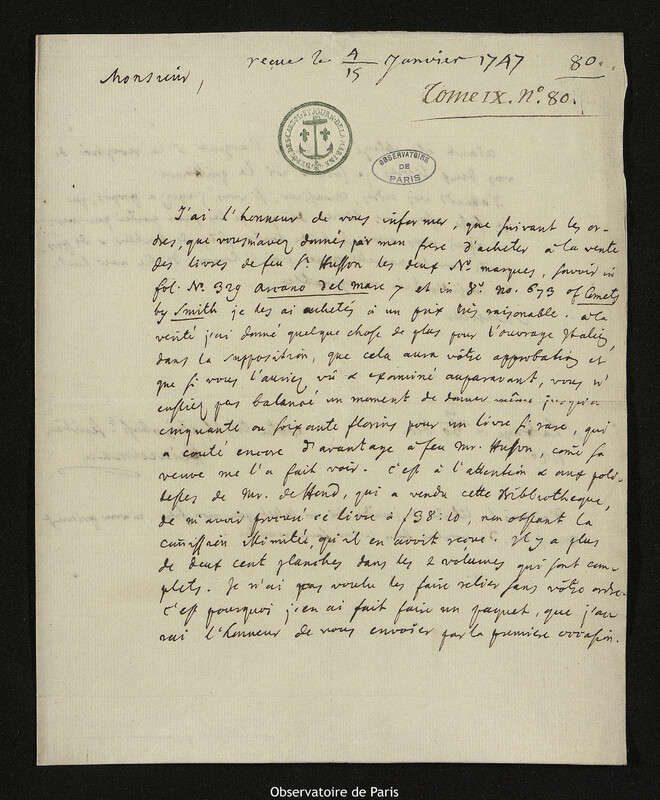 reçue le 4/15 Janvier 1747
80.
Monsieur,
Tome IX. N.º 80.
DEP. DES CART. ET JOURN. DE LA MARINE
OBSERVATOIRE
DE
PARIS
J'ai l'honneur de vous informer, que suivant les or-
dres, que vous m'avez donnés par mon frere d'acheter à la vente
des livres de feu Sr. Husson les deux Nº. marqués, savoir in
fol. Nº. 329 Arcano del mare 7 et in 8º. no. 673 of Comets
by Smith je les ai achetés à un prix tres raisonable. à la
verité j'ai donné quelque chose de plus pour l'ouvrage Italien,
dans la supposition, que cela aura vôtre approbation et
que si vous l'auriez vû & examiné auparavant, vous n'
eussiez pas balancé un moment de donner même jusqu'a
cinquante ou soixante florins pour un livre si rare, qui
a couté encore d'avantage à feu Mr. Husson, come sa
veuve me l'a fait voir. C'est à l'attention & aux poli-
tesses de Mr. de Hond, qui a vendu cette Bibliotheque,
de m'avoir procuré ce livre à f 38:10, non obstant la
commission illimitée, qu'il en avoit reçue. Il y a plus
de deux cent planches dans les 2 volumes qui sont com-
plets. Je n'ai pas voulu les faire relier sans vôtre ordre
c'est pourquoi j'en ai fait faire un paquet, que j'au
rai l'honneur de vous envoier par la premiere occasion.
Observatoire de Paris